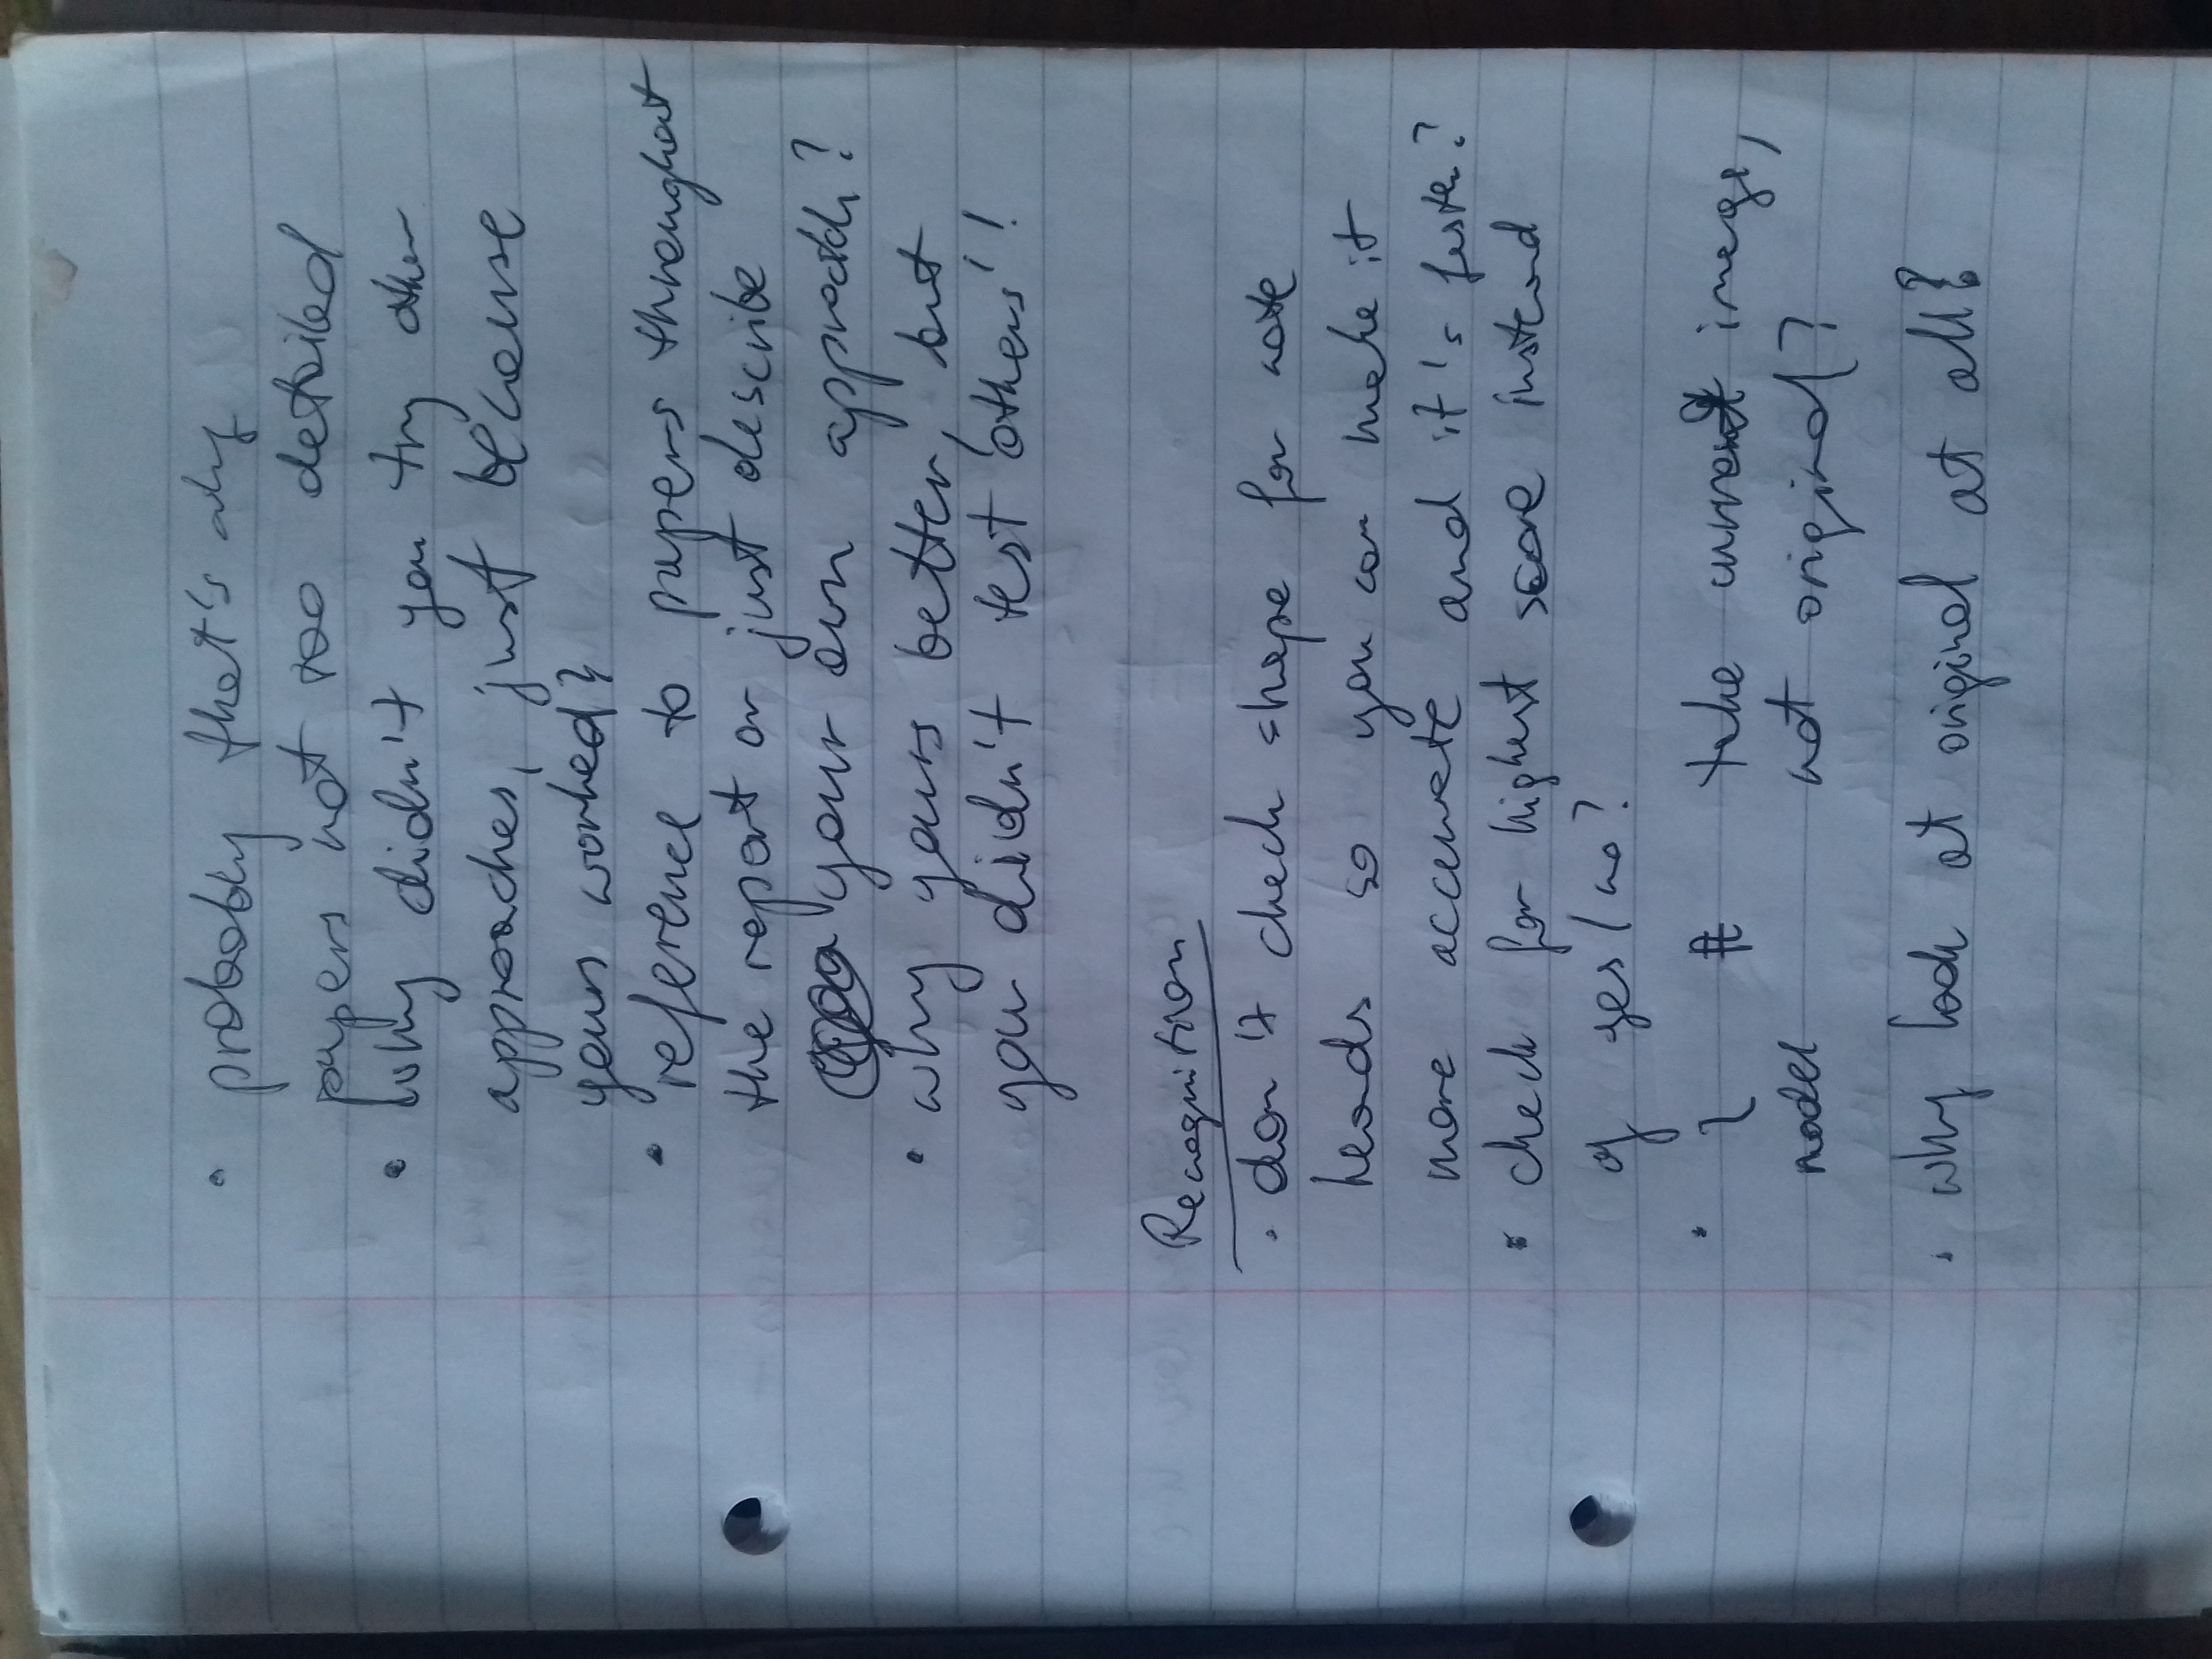 • probably that's why
papers not too detailed
• Why didn't you try other
approaches, just because
yours worked?
• reference to papers throughout
the report or just describe
your own approach?
• why yours better, but
you didn't test others'!
Recognition
• don't check shape for note
heads so you can make it
more accurate and it's faster?
• check for highest score instead
of yes/no?
• take current image,
model not original?
• why look at original at all?